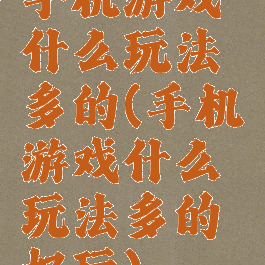 手机游戏
什么玩法
多的(手机
游戏什么
玩法多的
好玩)